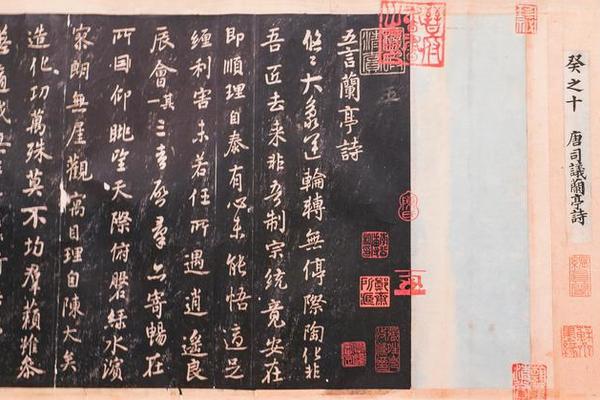 癸之十 唐司議蘭亭詩
五
五
五言蘭亭詩
悠〻大象運輪轉無停際陶化非
吾匠去來非吾制宗統竟安在
即順理自泰有心未能悟適足
纏利害未若任所遇逍遙良
辰會其一三春啓羣品寄暢在
所因仰眺望天際俯磐綠水濱
寥朗無厓觀寓目理自陳大矣
造化功萬殊莫不均羣籟雖參